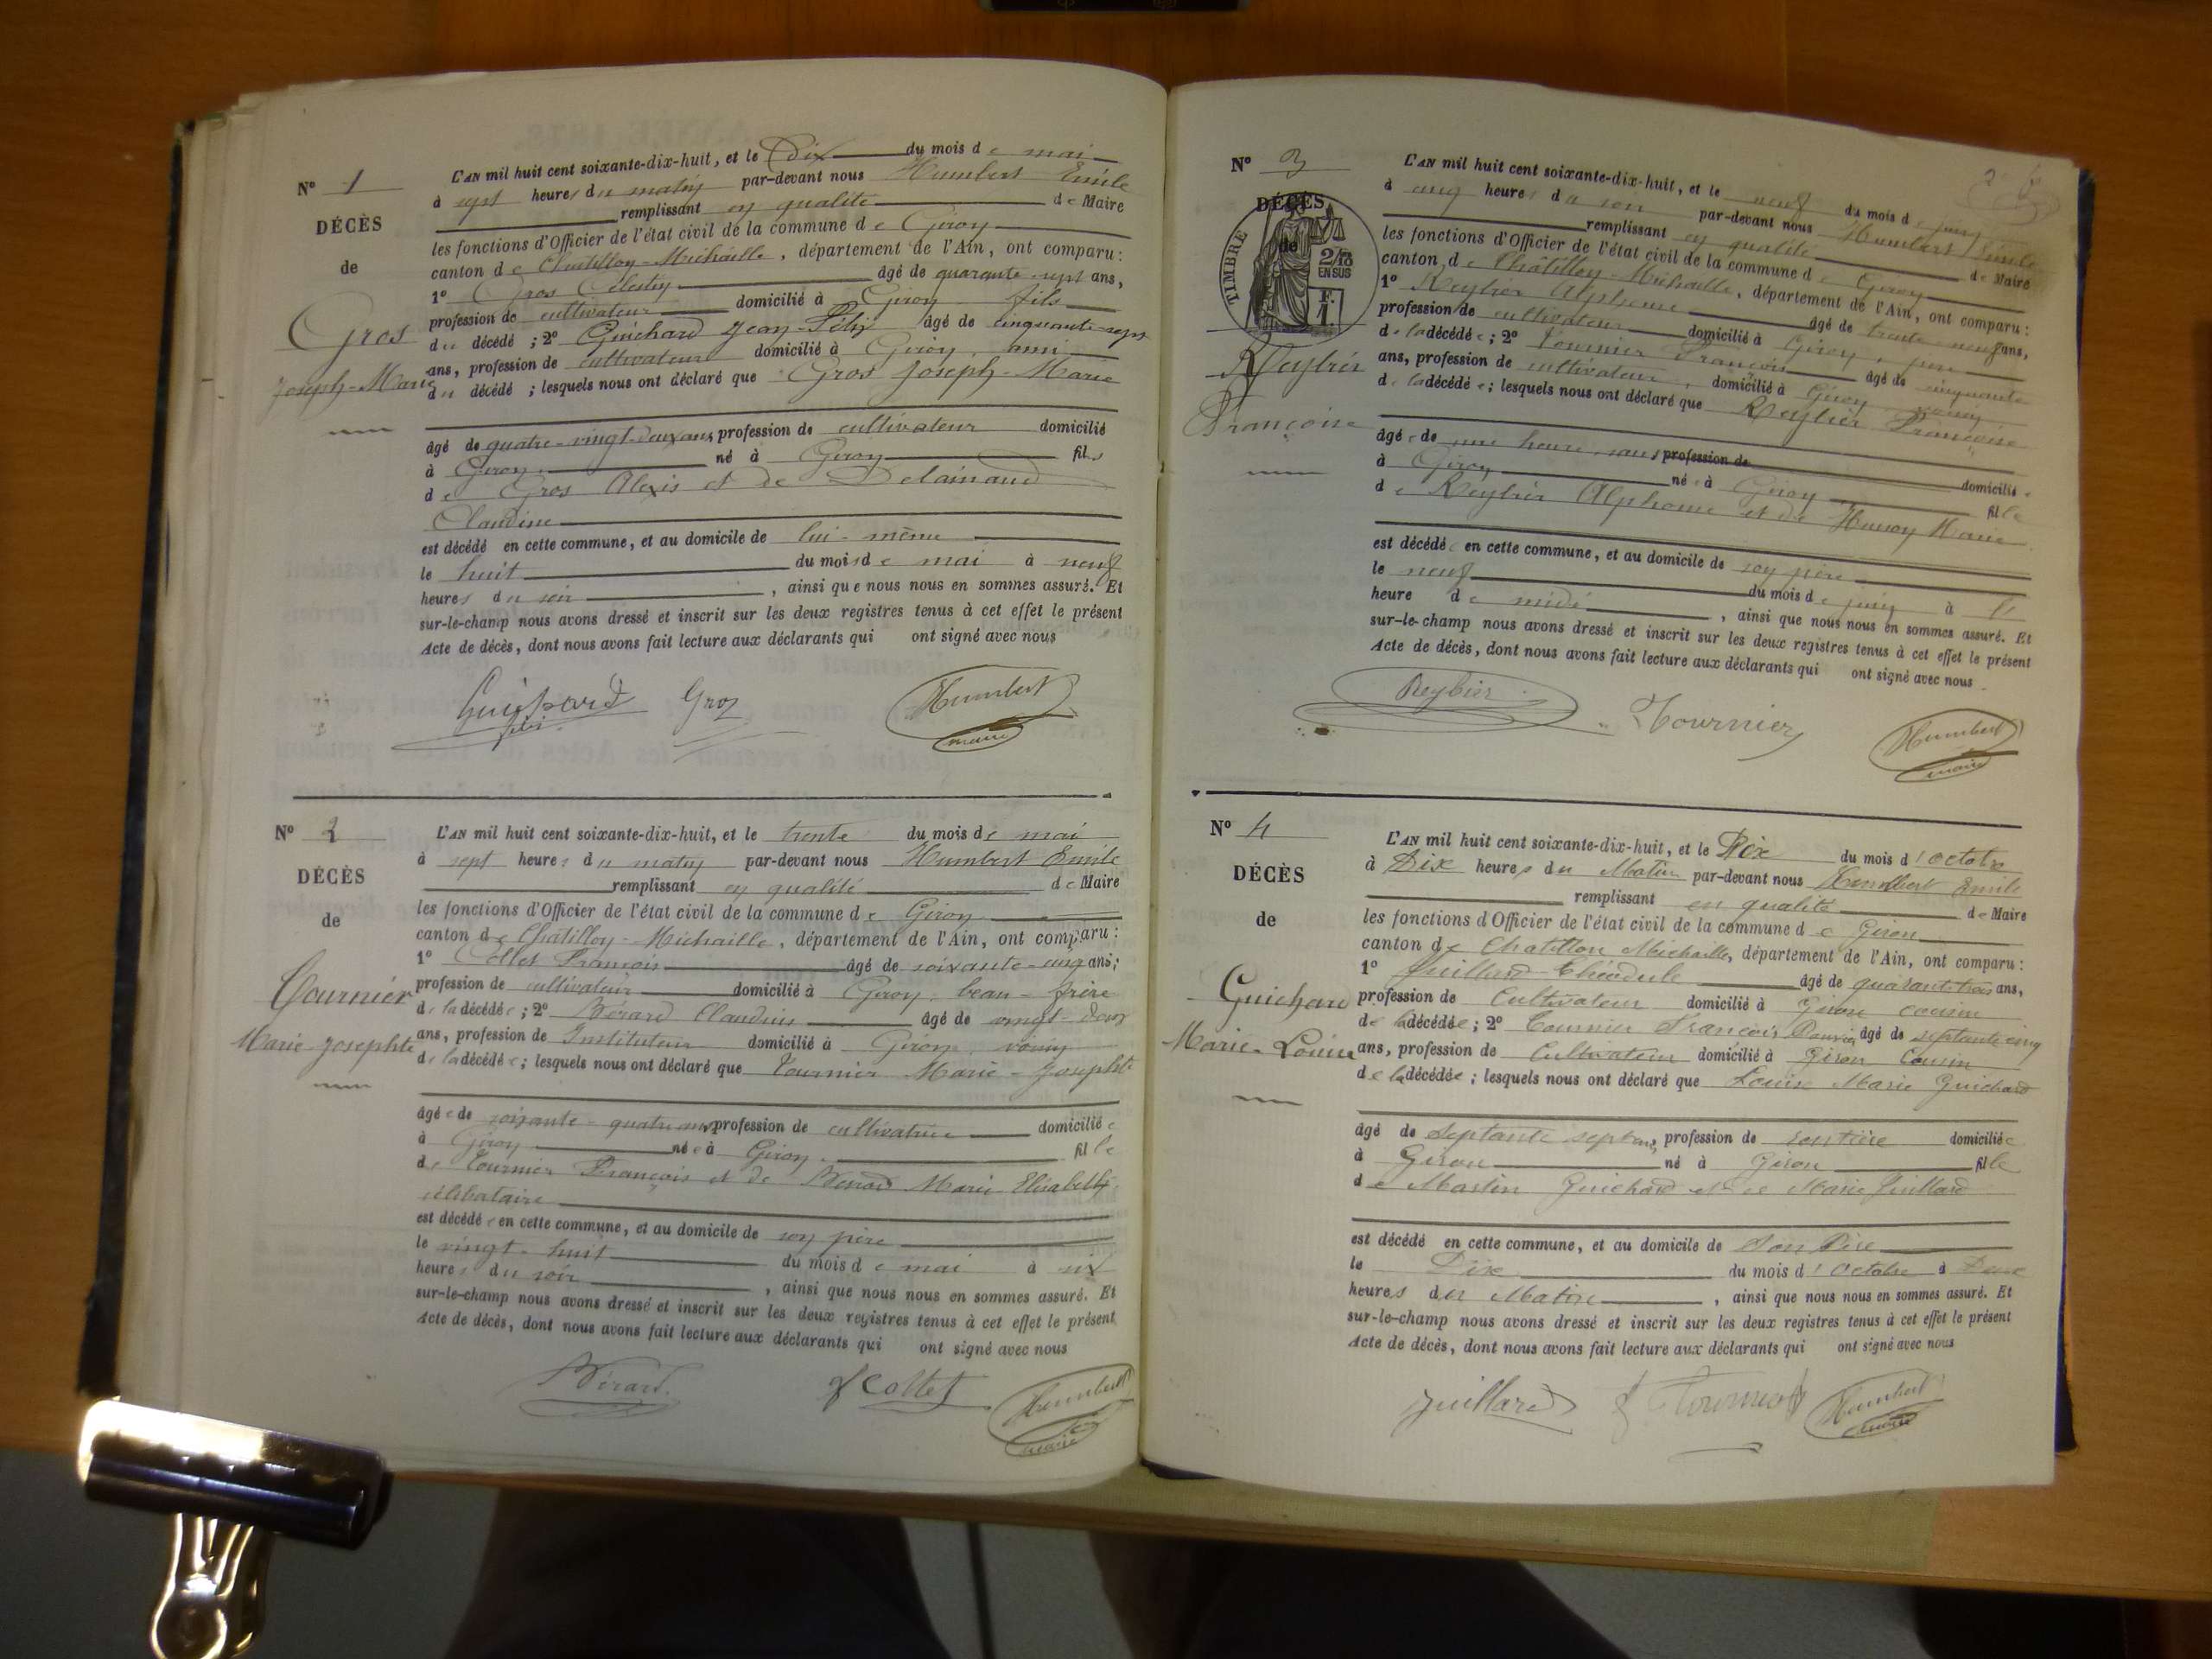 N° 1
DÉCÈS
de
Gros
Joseph-Marie
L'AN mil huit cent soixante-dix-huit, et le Dix du mois de mai
à sept heures du matin par-devant nous Humbert Emile
remplissant en qualité de Maire
les fonctions d'Officier de l'état civil de la commune de Giron
canton de Chatillon-Michaille, département de l'Ain, ont comparu :
1° Gros Célestin âgé de quarante-sept ans,
profession de cultivateur domicilié à Giron fils
du décédé ; 2° Guichard Jean-Félix âgé de cinquante-sept
ans, profession de cultivateur domicilié à Giron, ami
du décédé ; lesquels nous ont déclaré que Gros Joseph-Marie
âgé de quatre-vingt-deux ans, profession de cultivateur domicilié
à Giron né à Giron fils
de Gros Alexis et de Delainaud
Claudine
est décédé en cette commune, et au domicile de lui-même
le huit du mois de mai à neuf
heures du soir, ainsi que nous nous en sommes assuré. Et
sur-le-champ nous avons dressé et inscrit sur les deux registres tenus à cet effet le présent
Acte de décès, dont nous avons fait lecture aux déclarants qui ont signé avec nous
Guichard Gros Humbert
maire
N° 2
DÉCÈS
de
Tournier
Marie-Josephte
L'AN mil huit cent soixante-dix-huit, et le trente du mois de mai
à sept heures du matin par-devant nous Humbert Emile
remplissant en qualité de Maire
les fonctions d'Officier de l'état civil de la commune de Giron
canton de Chatillon-Michaille, département de l'Ain, ont comparu :
1° Collet François âgé de soixante-cinq ans,
profession de cultivateur domicilié à Giron, beau-frère
de la décédée ; 2° Bérard Claudius âgé de vingt-deux
ans, profession de Instituteur domicilié à Giron, voisin
de la décédée ; lesquels nous ont déclaré que Tournier Marie-Josephte
âgée de soixante-quatre ans, profession de cultivatrice domiciliée
à Giron née à Giron fille
de Tournier François et de Marie Elisabeth
célibataire
est décédée en cette commune, et au domicile de son père
le vingt-huit du mois de mai à six
heures du soir, ainsi que nous nous en sommes assuré. Et
sur-le-champ nous avons dressé et inscrit sur les deux registres tenus à cet effet le présent
Acte de décès, dont nous avons fait lecture aux déclarants qui ont signé avec nous
Bérard f Collet Humbert
maire
N° 3
DÉCÈS
de
TIMBRE
2/10
EN SUS
F.
1
Reybier
Françoise
L'AN mil huit cent soixante-dix-huit, et le neuf du mois de juin
à cinq heures du soir par-devant nous Humbert Emile
remplissant en qualité de Maire
les fonctions d'Officier de l'état civil de la commune de Giron
canton de Châtillon-Michaille, département de l'Ain, ont comparu :
1° Reybier Alphonse âgé de trente-neuf ans,
profession de cultivateur domicilié à Giron, père
de la décédée ; 2° Tournier François âgé de cinquante
ans, profession de cultivateur, domicilié à Giron voisin
de la décédée ; lesquels nous ont déclaré que Reybier Françoise
âgée de une heure, sans profession de domiciliée
à Giron née à Giron fille
de Reybier Alphonse et de Marie
est décédée en cette commune, et au domicile de son père
le neuf du mois de juin à
heure de midi, ainsi que nous nous en sommes assuré. Et
sur-le-champ nous avons dressé et inscrit sur les deux registres tenus à cet effet le présent
Acte de décès, dont nous avons fait lecture aux déclarants qui ont signé avec nous
Reybier Tournier Humbert
maire
N° 4
DÉCÈS
de
Guichard
Marie-Louise
L'AN mil huit cent soixante-dix-huit, et le Dix du mois d'octobre
à Dix heures du Matin par-devant nous Humbert Emile
remplissant en qualité de Maire
les fonctions d'Officier de l'état civil de la commune de Giron
canton de Chatillon Michaille, département de l'Ain, ont comparu :
1° Juillard Théodule âgé de quarante trois ans,
profession de Cultivateur domicilié à Giron cousin
de la décédée ; 2° Tournier François, âgé de septante cinq
ans, profession de Cultivateur domicilié à Giron Cousin
de la décédée ; lesquels nous ont déclaré que Louise Marie Guichard
âgé de septante sept ans, profession de rentière domiciliée
à Giron né à Giron fille
de Martin Guichard et de Marie Juillard
est décédé en cette commune, et au domicile de son Père
le Dix du mois d'Octobre à Deux
heures du Matin, ainsi que nous nous en sommes assuré. Et
sur-le-champ nous avons dressé et inscrit sur les deux registres tenus à cet effet le présent
Acte de décès, dont nous avons fait lecture aux déclarants qui ont signé avec nous
Juillard f Tournier Humbert
maire